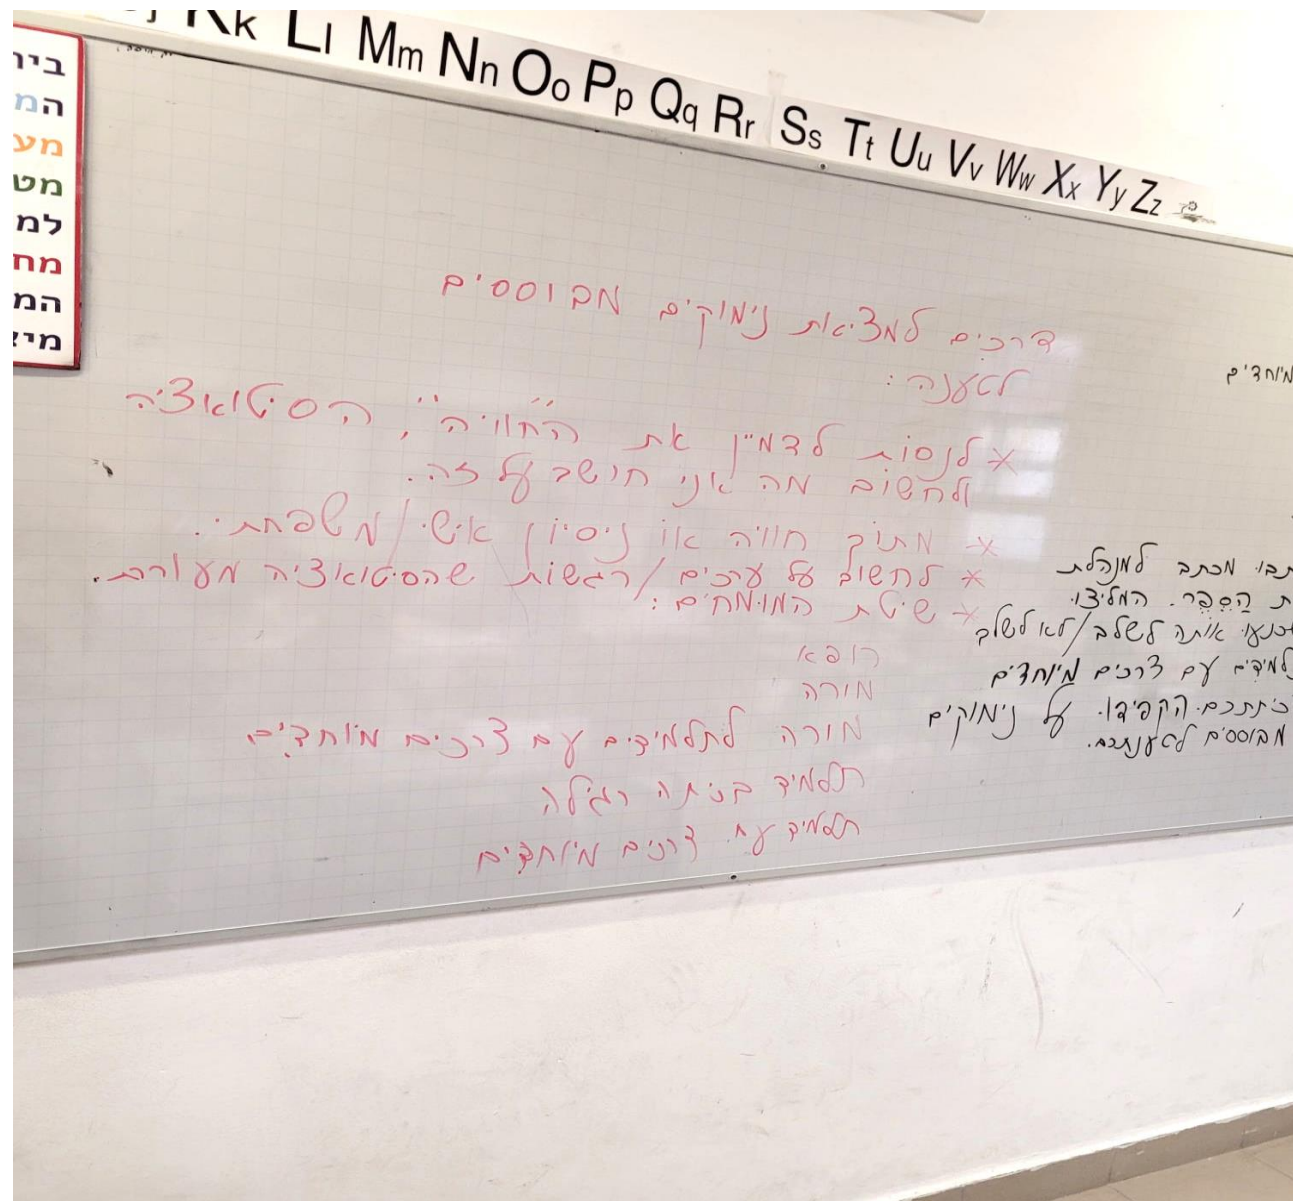 Kk Ll Mm Nn Oo Pp Qq Rr Ss Tt Uu Vv Ww Xx Yy Zz
דרכים למציאת נימוקים מבוססים
לטענה:
* לנסות לדמיין את ה"חוויה", הסיטואציה
ולחשוב מה אני חושב על זה.
* מתוך חוויה או ניסיון אישי/משפחתי.
* לחשוב על ערכים/רגשות שהסיטואציה מעוררת.
* שיטת המומחים:
רופא
מורה
מורה לתלמידים עם צרכים מיוחדים
תלמיד בכיתה רגילה
תלמיד עם צרכים מיוחדים
מיוחדים
תבו מכתב למנהלת
ת הַסֵפֶר. המליצו
כנעו אותה לשלב/לא לשלב
למידים עם צרכים מיוחדים
כיתתכם. הקפידו על נימוקים
מבוססים לטענתכם.
בית
המ
מע
מט
למ
מח
המ